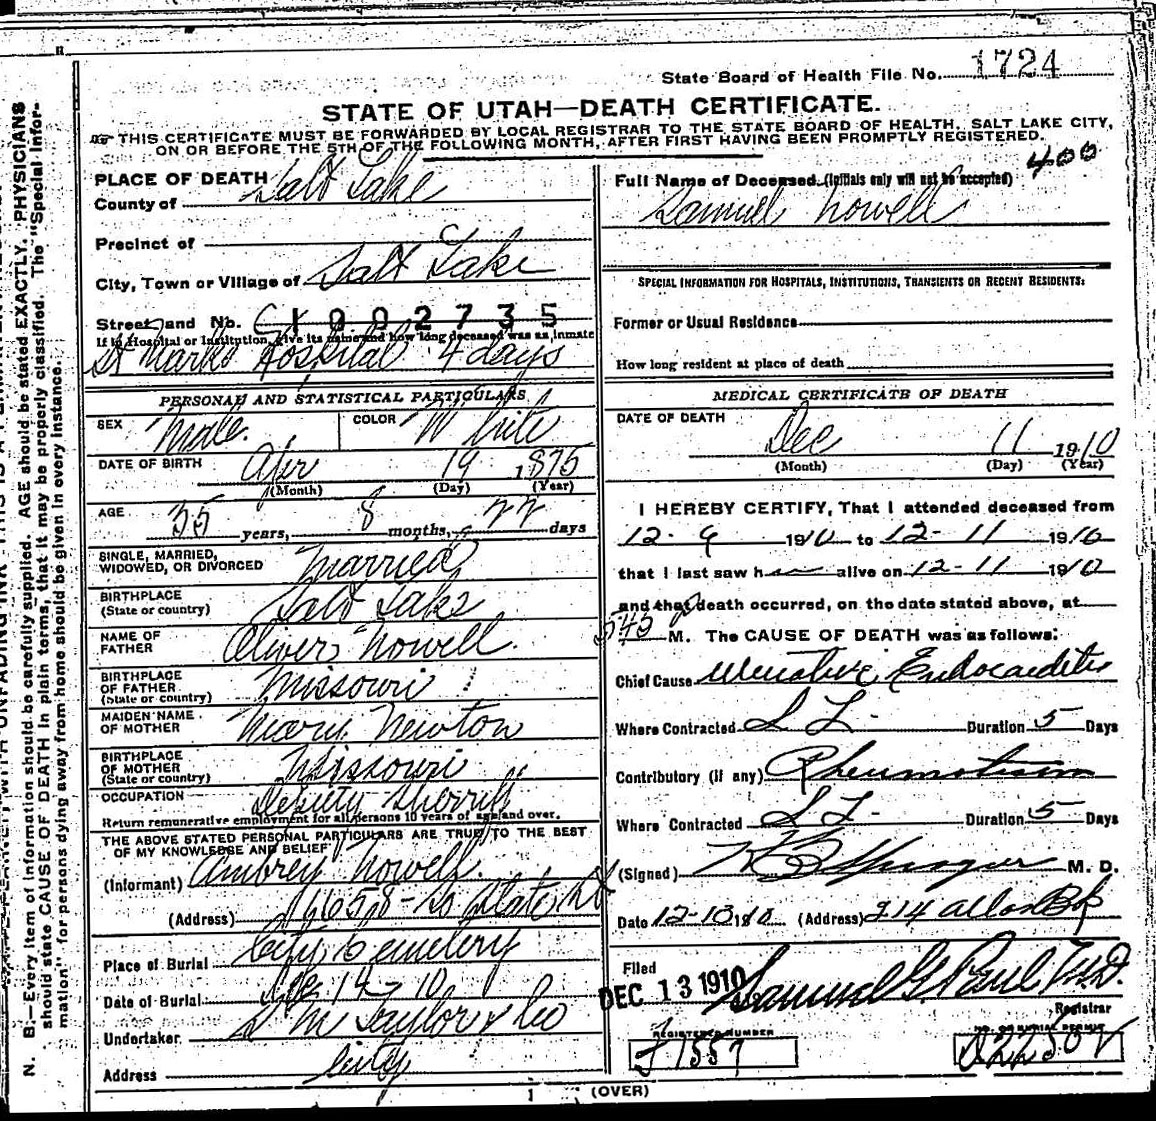 State Board of Health File No. 1724
STATE OF UTAH—DEATH CERTIFICATE.
THIS CERTIFICATE MUST BE FORWARDED BY LOCAL REGISTRAR TO THE STATE BOARD OF HEALTH, SALT LAKE CITY,
ON OR BEFORE THE 5TH OF THE FOLLOWING MONTH, AFTER FIRST HAVING BEEN PROMPTLY REGISTERED.
400
PLACE OF DEATH
County of Salt Lake
Precinct of
City, Town or Village of Salt Lake
Street and No. 1002735
If in Hospital or Institution, give its name and how long deceased was as inmate
St Marks Hospital 4 days
PERSONAL AND STATISTICAL PARTICULARS
SEX Male. COLOR White
DATE OF BIRTH Apr 19 1875
(Month) (Day) (Year)
AGE 35 years, 8 months, 22 days
SINGLE, MARRIED,
WIDOWED, OR DIVORCED Married
BIRTHPLACE
(State or country) Salt Lake
NAME OF
FATHER Oliver Nowell.
BIRTHPLACE
OF FATHER
(State or country) Missouri
MAIDEN NAME
OF MOTHER Mary Newton
BIRTHPLACE
OF MOTHER
(State or country) Missouri
OCCUPATION Deputy Sherriff
Return remunerative employment for all persons 10 years of age and over.
THE ABOVE STATED PERSONAL PARTICULARS ARE TRUE TO THE BEST
OF MY KNOWLEDGE AND BELIEF
(Informant) Aubrey Nowell.
(Address) 1665 - So State St
Place of Burial City Cemetery
Date of Burial Dec 14 - 10
Undertaker S M Taylor & Co
Address City
Full Name of Deceased. (Initials only will not be accepted)
Samuel Nowell
SPECIAL INFORMATION FOR HOSPITALS, INSTITUTIONS, TRANSIENTS OR RECENT RESIDENTS:
Former or Usual Residence
How long resident at place of death
MEDICAL CERTIFICATE OF DEATH
DATE OF DEATH
Dec 11 1910
(Month) (Day) (Year)
I HEREBY CERTIFY, That I attended deceased from
12-9 1910 to 12-11 1910
that I last saw h alive on 12-11 1910
and that death occurred, on the date stated above, at
545 M. The CAUSE OF DEATH was as follows:
Chief Cause Ulcerative Endocarditis
Where Contracted S L. Duration 5 Days
Contributory (if any) Rheumatism
Where Contracted S L. Duration 5 Days
(Signed) M. D.
Date 12-13 1910 (Address) 214 Atlas Bk
Filed
DEC 13 1910 Samuel G. Paul M.D.
Registrar
REGISTERED NUMBER
J 1557
NO. OF BURIAL PERMIT
(OVER)
N. B.—Every item of information should be carefully supplied. AGE should be stated EXACTLY. PHYSICIANS
should state CAUSE OF DEATH in plain terms, that it may be properly classified. The "Special Infor-
mation" for persons dying away from home should be given in every instance.